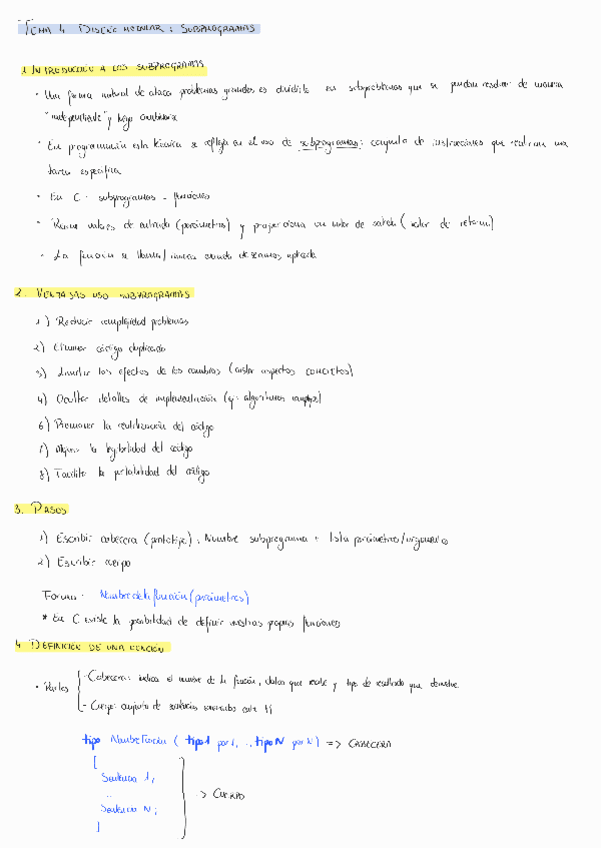 TEMA 4 DISEÑO MODULAR: SUBPROGRAMAS
1. INTRODUCCIÓN A LOS SUBPROGRAMAS
· Una forma natural de atacar problemas grandes es dividirlo en subproblemas que se puedan resolver de manera
"independiente" y luego combinarse
· En programación esta técnica se refleja en el uso de subprogramas: conjunto de instrucciones que realizan una
tarea específica
· En C: subprogramas = funciones
· Recibe valores de entrada (parámetros) y proporciona un valor de salida (valor de retorno)
· La función se llama/invoca cuando deseamos aplicarla
2. VENTAJAS USO SUBPROGRAMAS
1) Reducir complejidad problemas
2) Eliminar código duplicado
3) Limitar los efectos de los cambios (aislar aspectos concretos)
4) Ocultar detalles de implementación (ej: algoritmos)
6) Promover la reutilización del código
7) Mejorar la legibilidad del código
8) Facilitar la portabilidad del código
3. PASOS
1) Escribir cabecera (prototipo): Nombre subprograma + lista parámetros/argumentos
2) Escribir cuerpo
Forma: Nombre de la función (parámetros)
* En C existe la posibilidad de definir nuestras propias funciones
4. DEFINICIÓN DE UNA FUNCIÓN
· Partes
- Cabecera: indica el nombre de la función, datos que recibe y tipo de resultado que devuelve
- Cuerpo: conjunto de sentencias encerradas entre {}
tipo NombreFuncion ( tipo1 par1, .., tipoN parN) => CABECERA
{
Sentencia 1;
..
Sentencia N;
}
-> CUERPO